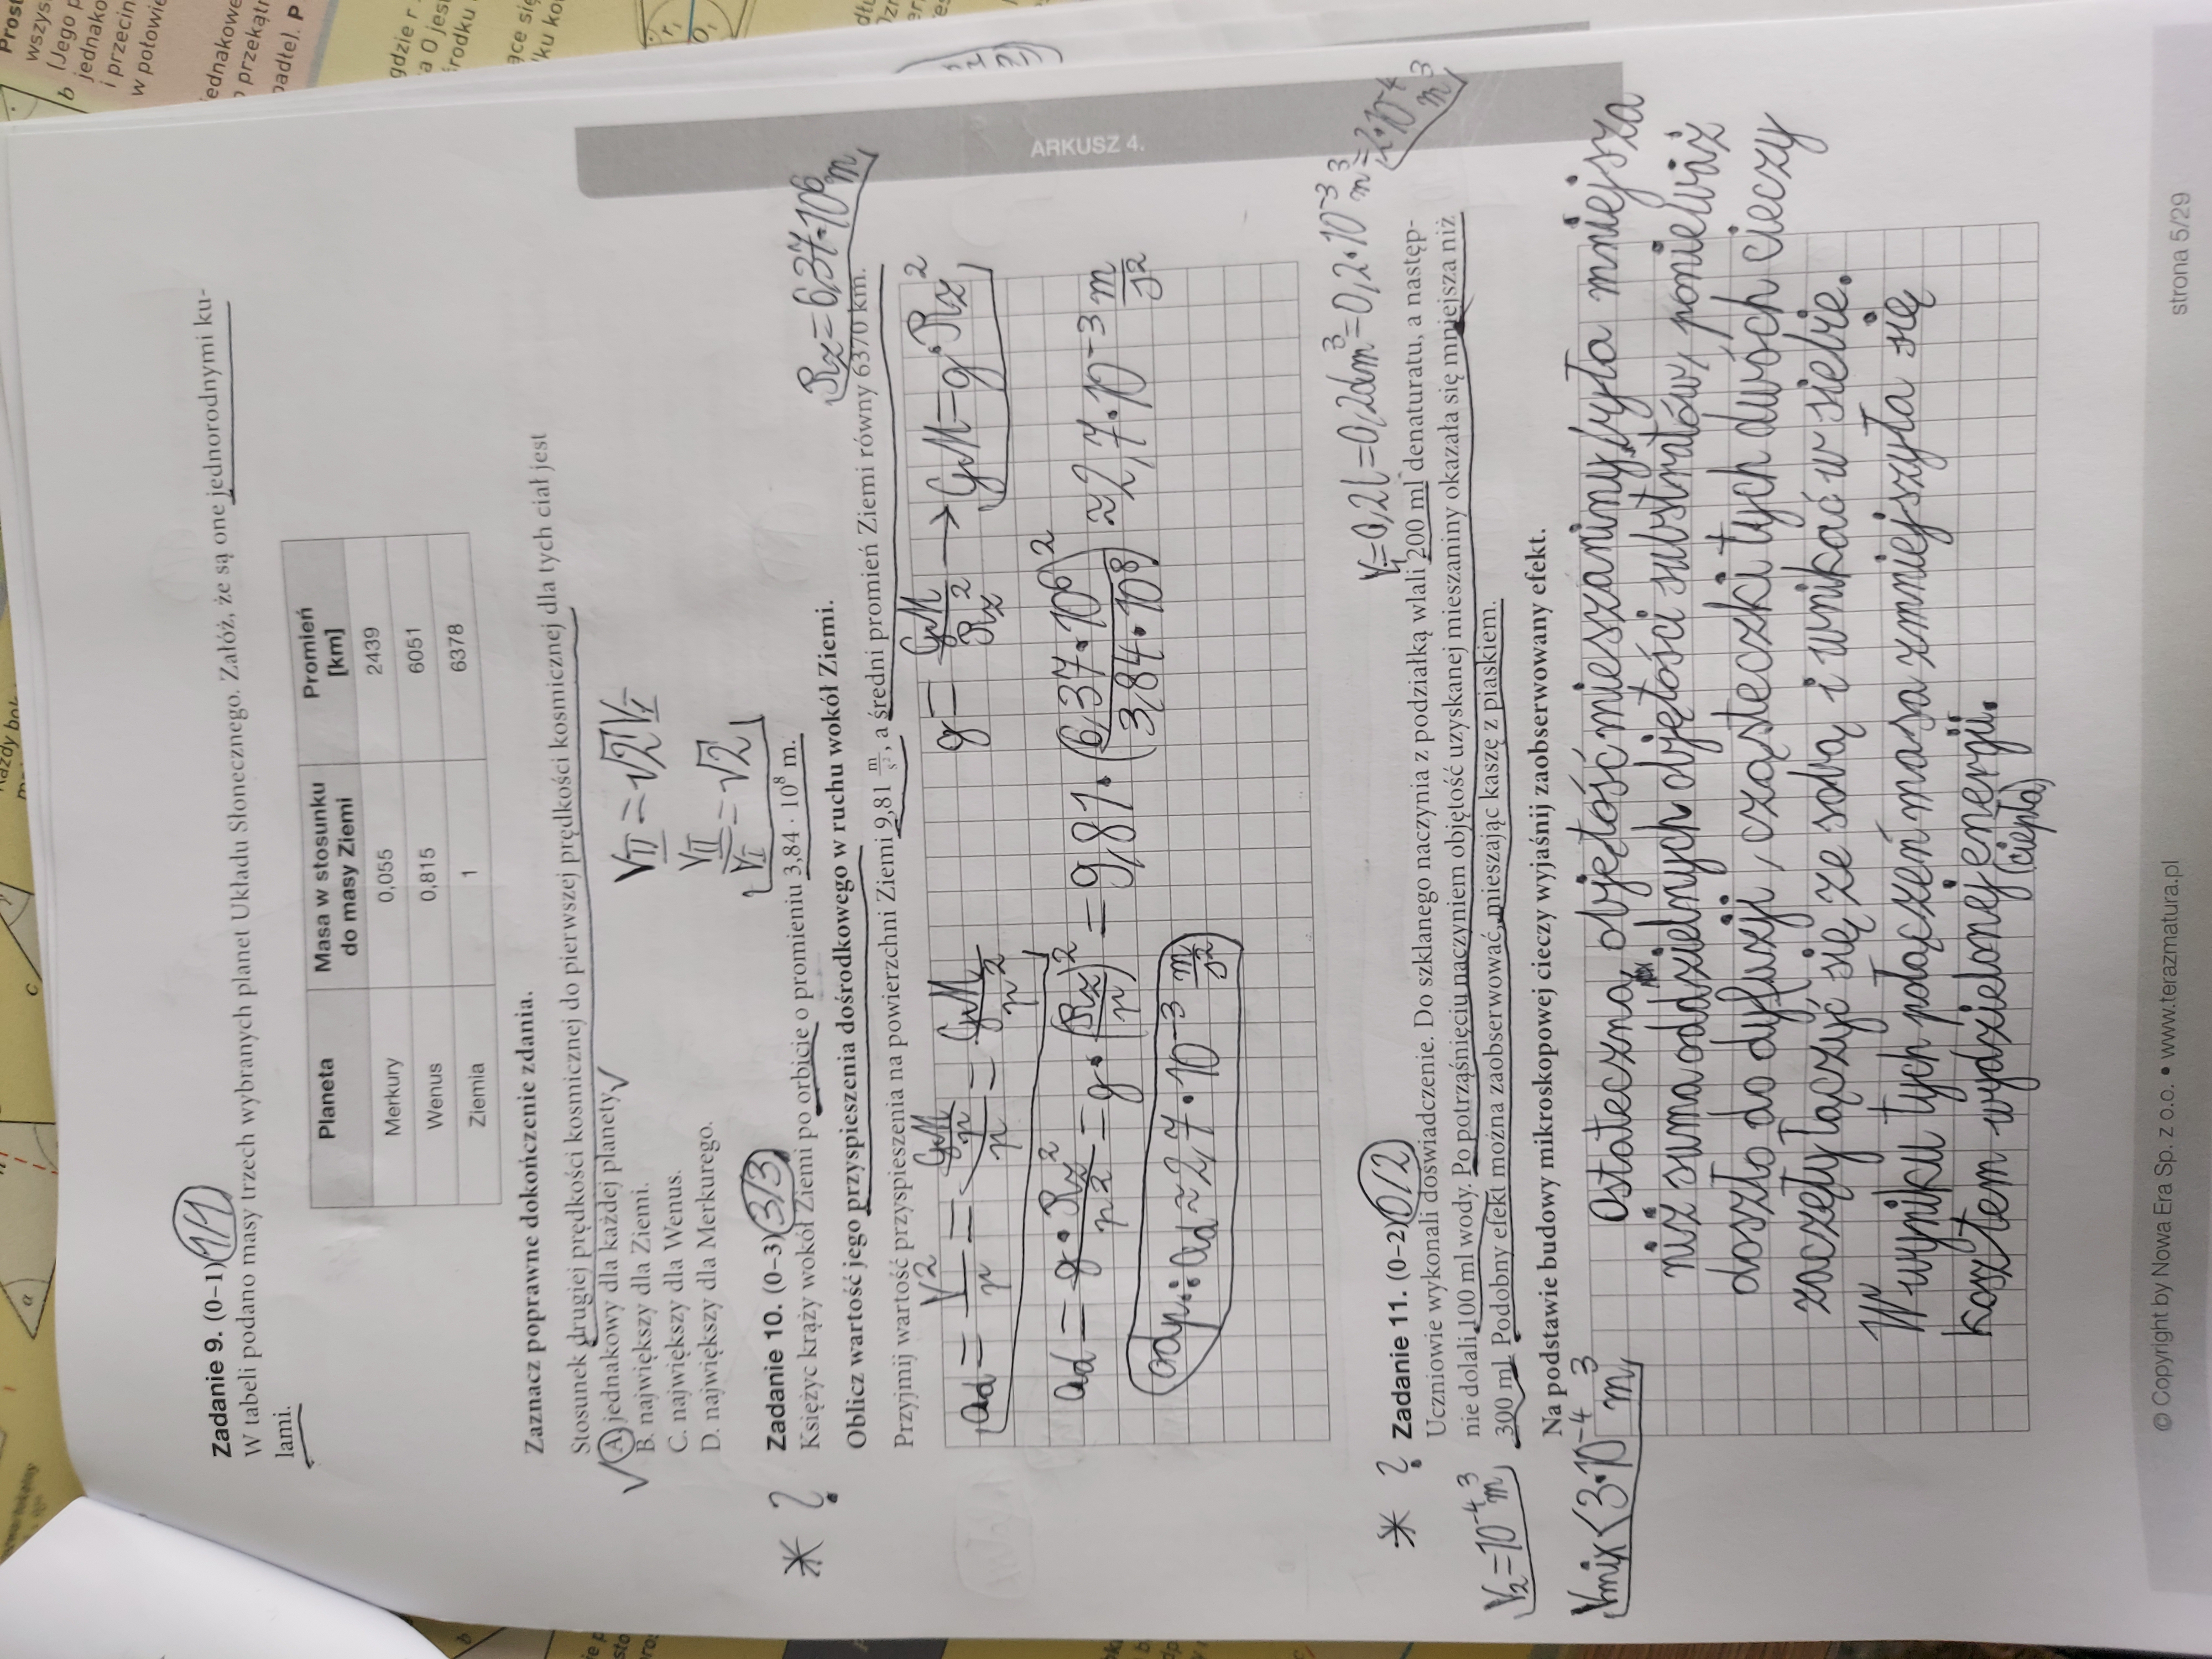 Zadanie 9. (0–1) 1/1
W tabeli podano masy trzech wybranych planet Układu Słonecznego. Załóż, że są one jednorodnymi ku-
lami.
Planeta Masa w stosunku do masy Ziemi Promień [km]
Merkury 0,055 2439
Wenus 0,815 6051
Ziemia 1 6378
Zaznacz poprawne dokończenie zdania.
Stosunek drugiej prędkości kosmicznej do pierwszej prędkości kosmicznej dla tych ciał jest
A. jednakowy dla każdej planety.
B. największy dla Ziemi.
C. największy dla Wenus.
D. największy dla Merkurego.
V_II = √2 V_I
V_II / V_I = √2
* ? Zadanie 10. (0–3) 3/3
Księżyc krąży wokół Ziemi po orbicie o promieniu 3,84 · 10⁸ m.
Oblicz wartość jego przyspieszenia dośrodkowego w ruchu wokół Ziemi.
Rz = 6,37·10⁶ m
Przyjmij wartość przyspieszenia na powierzchni Ziemi 9,81 m/s², a średni promień Ziemi równy 6370 km.
ad = V²/r = (GM/r)/r = GM/r² g = GM/Rz² → GM = g·Rz²
ad = g·Rz²/r² = g·(Rz/r)² = 9,81·(6,37·10⁶)²/(3,84·10⁸) ≈ 2,7·10⁻³ m/s²
odp.: ad ≈ 2,7·10⁻³ m/s²
ARKUSZ 4.
V₁ = 0,2l = 0,2dm³ = 0,2·10⁻³ m³ = 2·10⁻⁴ m³
* ? Zadanie 11. (0–2) 0/2
Uczniowie wykonali doświadczenie. Do szklanego naczynia z podziałką wlali 200 ml denaturatu, a następ-
nie dolali 100 ml wody. Po potrząśnięciu naczyniem objętość uzyskanej mieszaniny okazała się mniejsza niż
300 ml. Podobny efekt można zaobserwować, mieszając kaszę z piaskiem.
V₂ = 10⁻⁴ m³
Na podstawie budowy mikroskopowej cieczy wyjaśnij zaobserwowany efekt.
Vmix < 3·10⁻⁴ m³
Ostateczna objętość mieszaniny była mniejsza
niż suma oddzielnych objętości substratów, ponieważ
doszło do dyfuzji, cząsteczki tych dwóch cieczy
zaczęły łączyć się ze sobą i wnikać w siebie.
W wyniku tych połączeń masa zmniejszyła się
kosztem wydzielonej energii.
(ciepła)
© Copyright by Nowa Era Sp. z o.o. • www.terazmatura.pl
strona 5/29